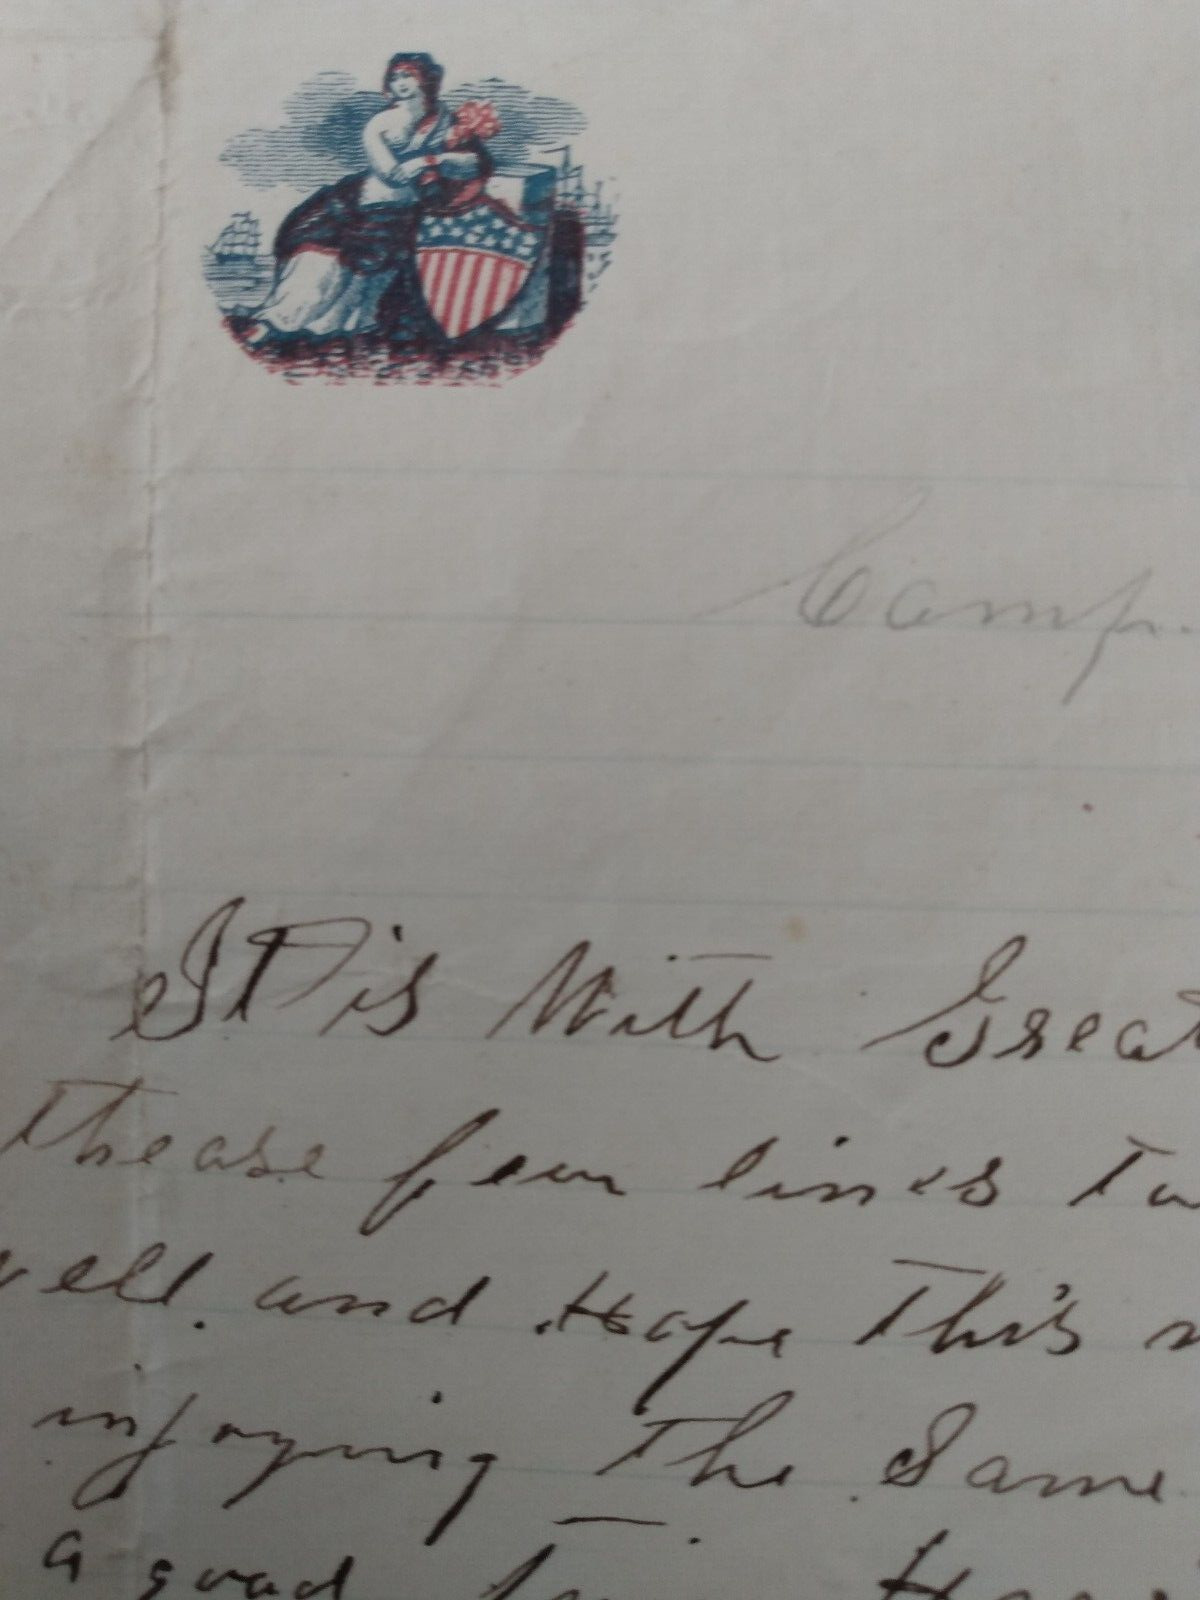 Camp.
It is With Great
thease few lines to
well. and Hope This
injoying The Same
a good